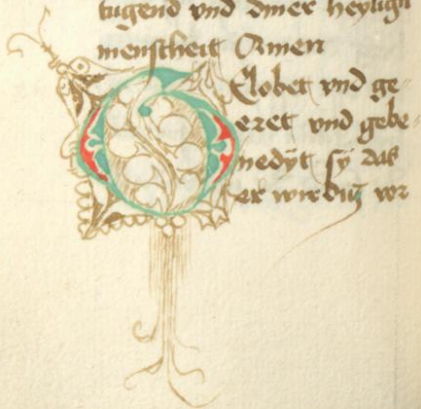 tugend vnd diner heyligen
menscheit Amen
Gelobet vnd ge
eret vnd gebe
nedÿt sÿ das
er wirdig vor